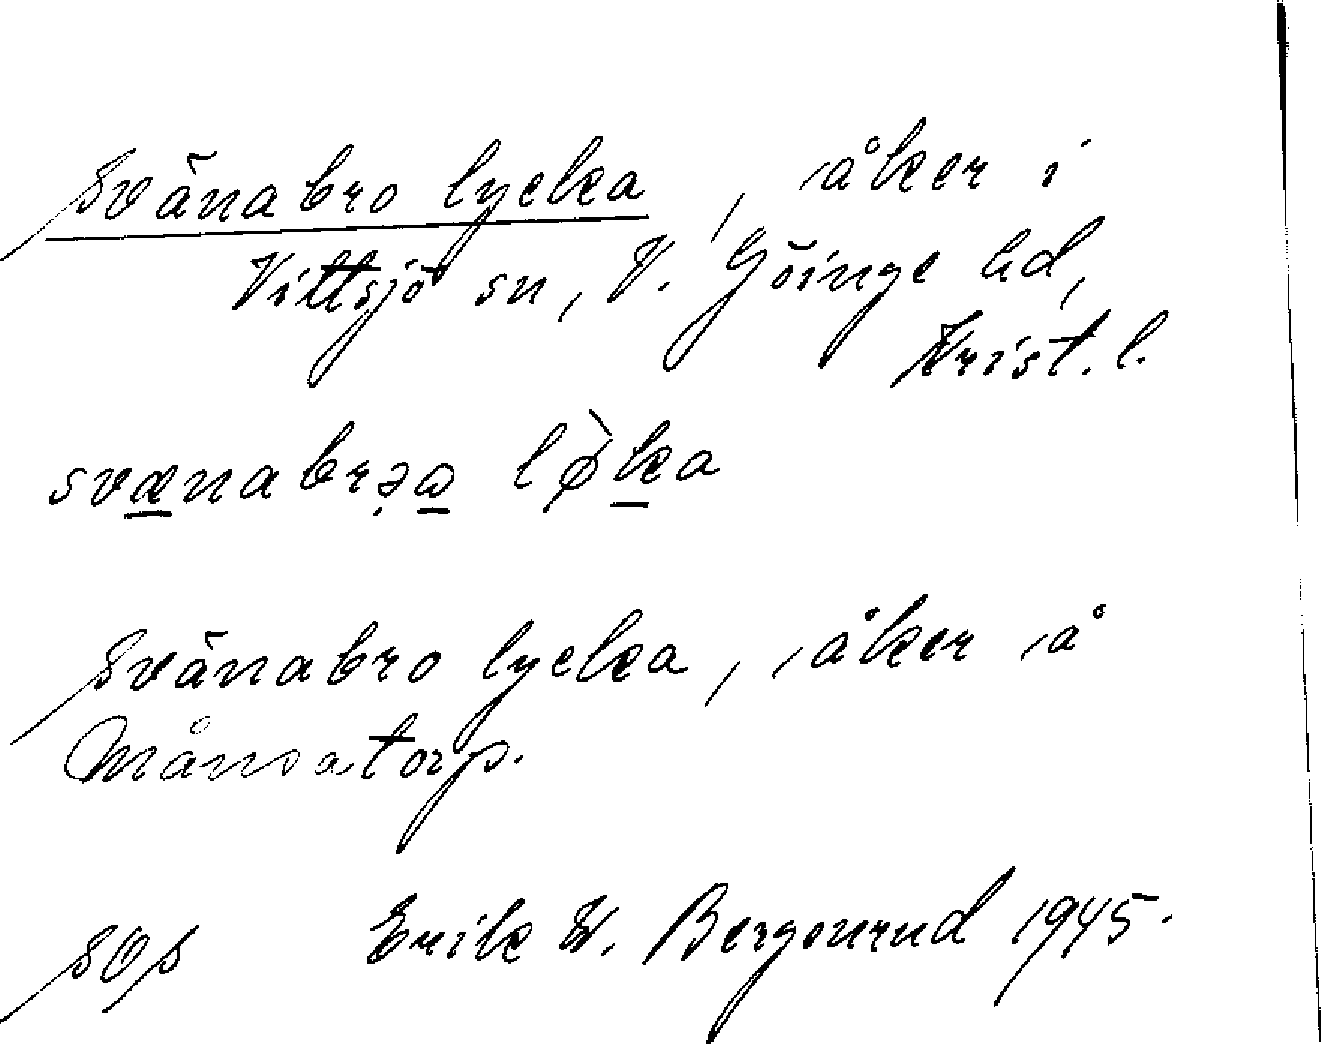 Svänabro lycka, åker i
Vittsjö sn, V. Göinge hd,
Krist. l.
svænabrəω lø̀ka
Svänabro lycka, åker å
Månsatorp.
Erik W. 1945.